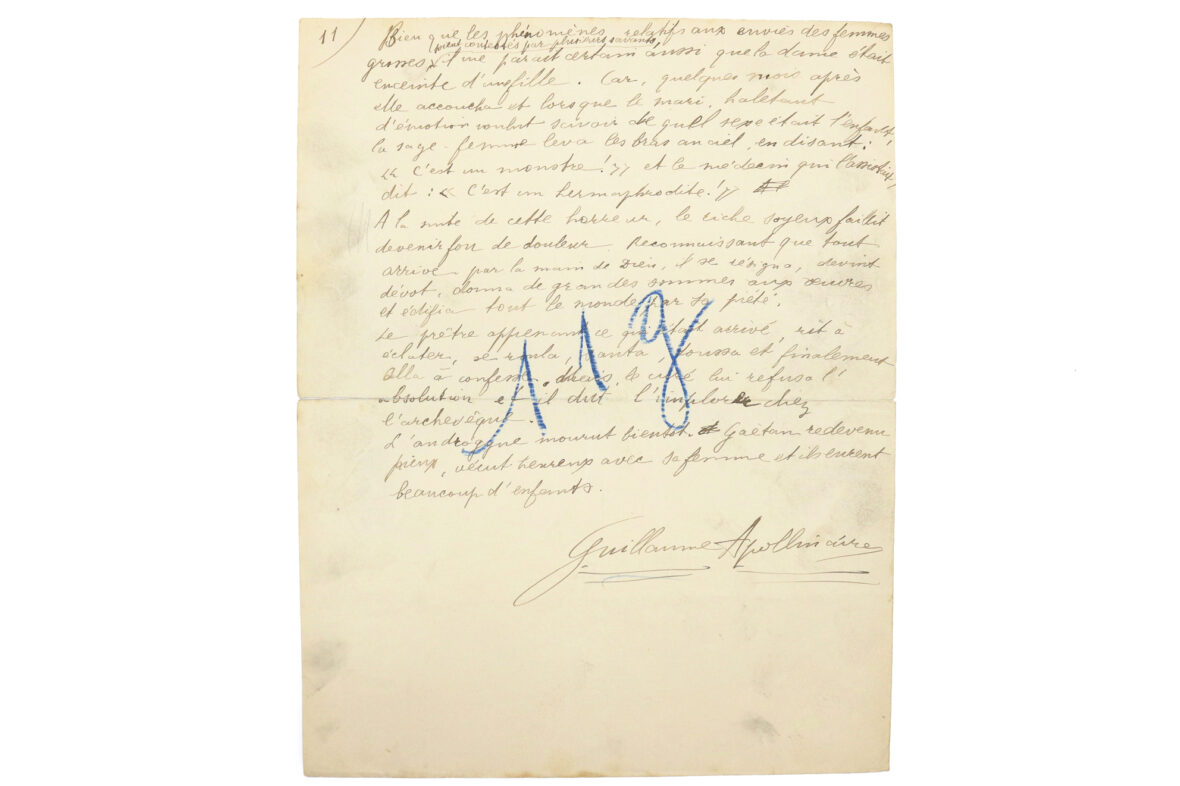 11)
Bien que les phénomènes relatifs aux envies des femmes
soient contestés par plusieurs savants,
grosses il me paraît certain aussi que la dame était
enceinte d'une fille. Car, quelques mois après
elle accoucha et lorsque le mari, haletant
d'émotion voulut savoir de quel sexe était l'enfant,
la sage-femme leva les bras au ciel, en disant :
« C'est un monstre ! » et le médecin qui l'assistait,
dit : « C'est un hermaphrodite ! »
A la suite de cette horreur, le riche soyeux faillit
devenir fou de douleur. Reconnaissant que tout
arrive par la main de Dieu, il se résigna, devint
dévot, donna de grandes sommes aux œuvres
et édifia tout le monde par sa piété.
Le prêtre apprenant ce qui était arrivé, rit à
éclater, se roula, sauta, toussa et finalement
alla à confesse. Mais, le curé lui refusa l'
absolution et il dut l'implorer chez
l'archevêque.
L'androgyne mourut bientôt. Gaëtan redevenu
pieux, vécut heureux avec sa femme et ils eurent
beaucoup d'enfants.
Guillaume Apollinaire
118